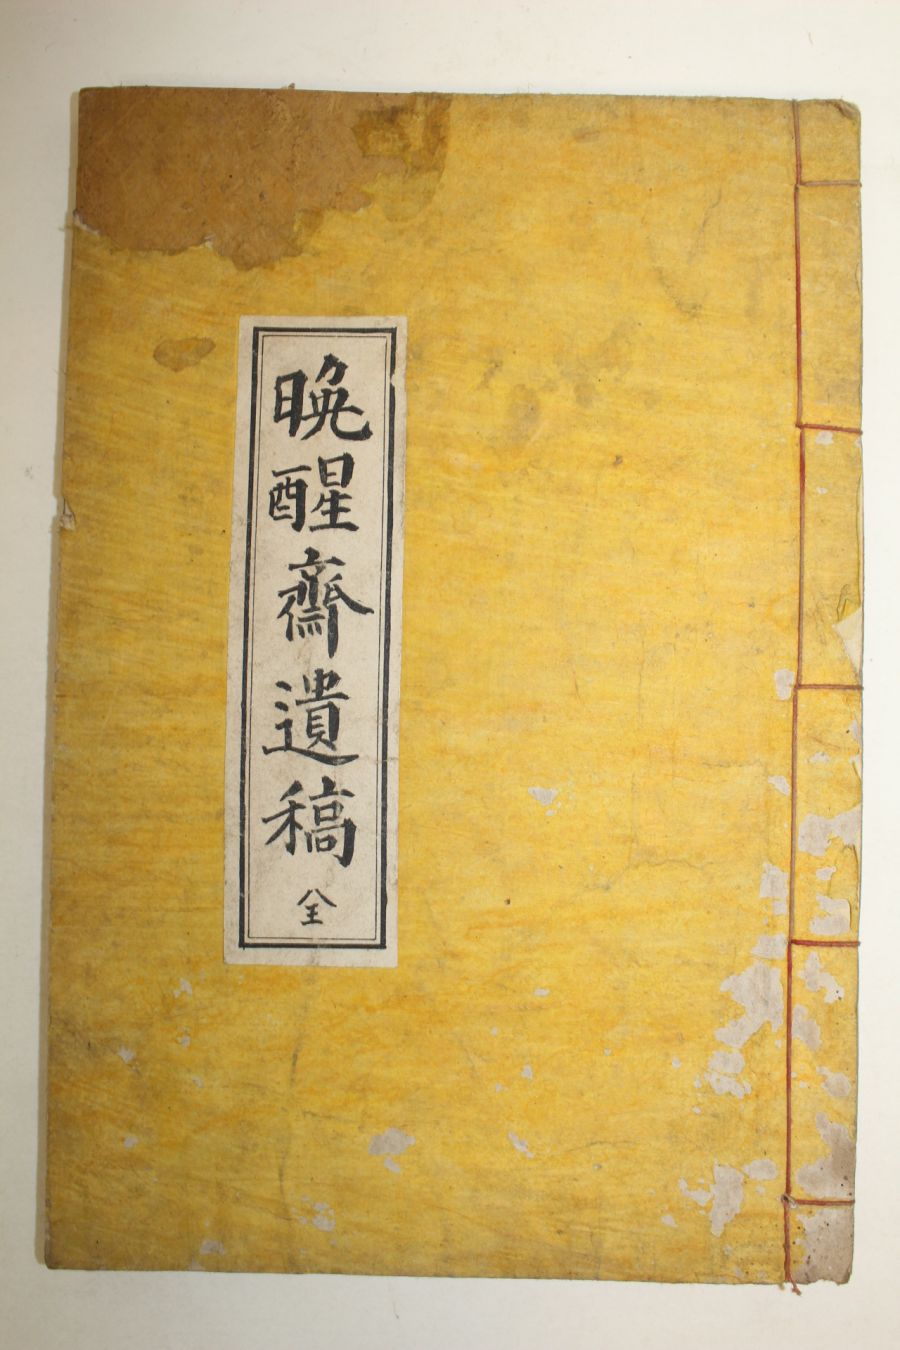 晩醒齋遺稿 全